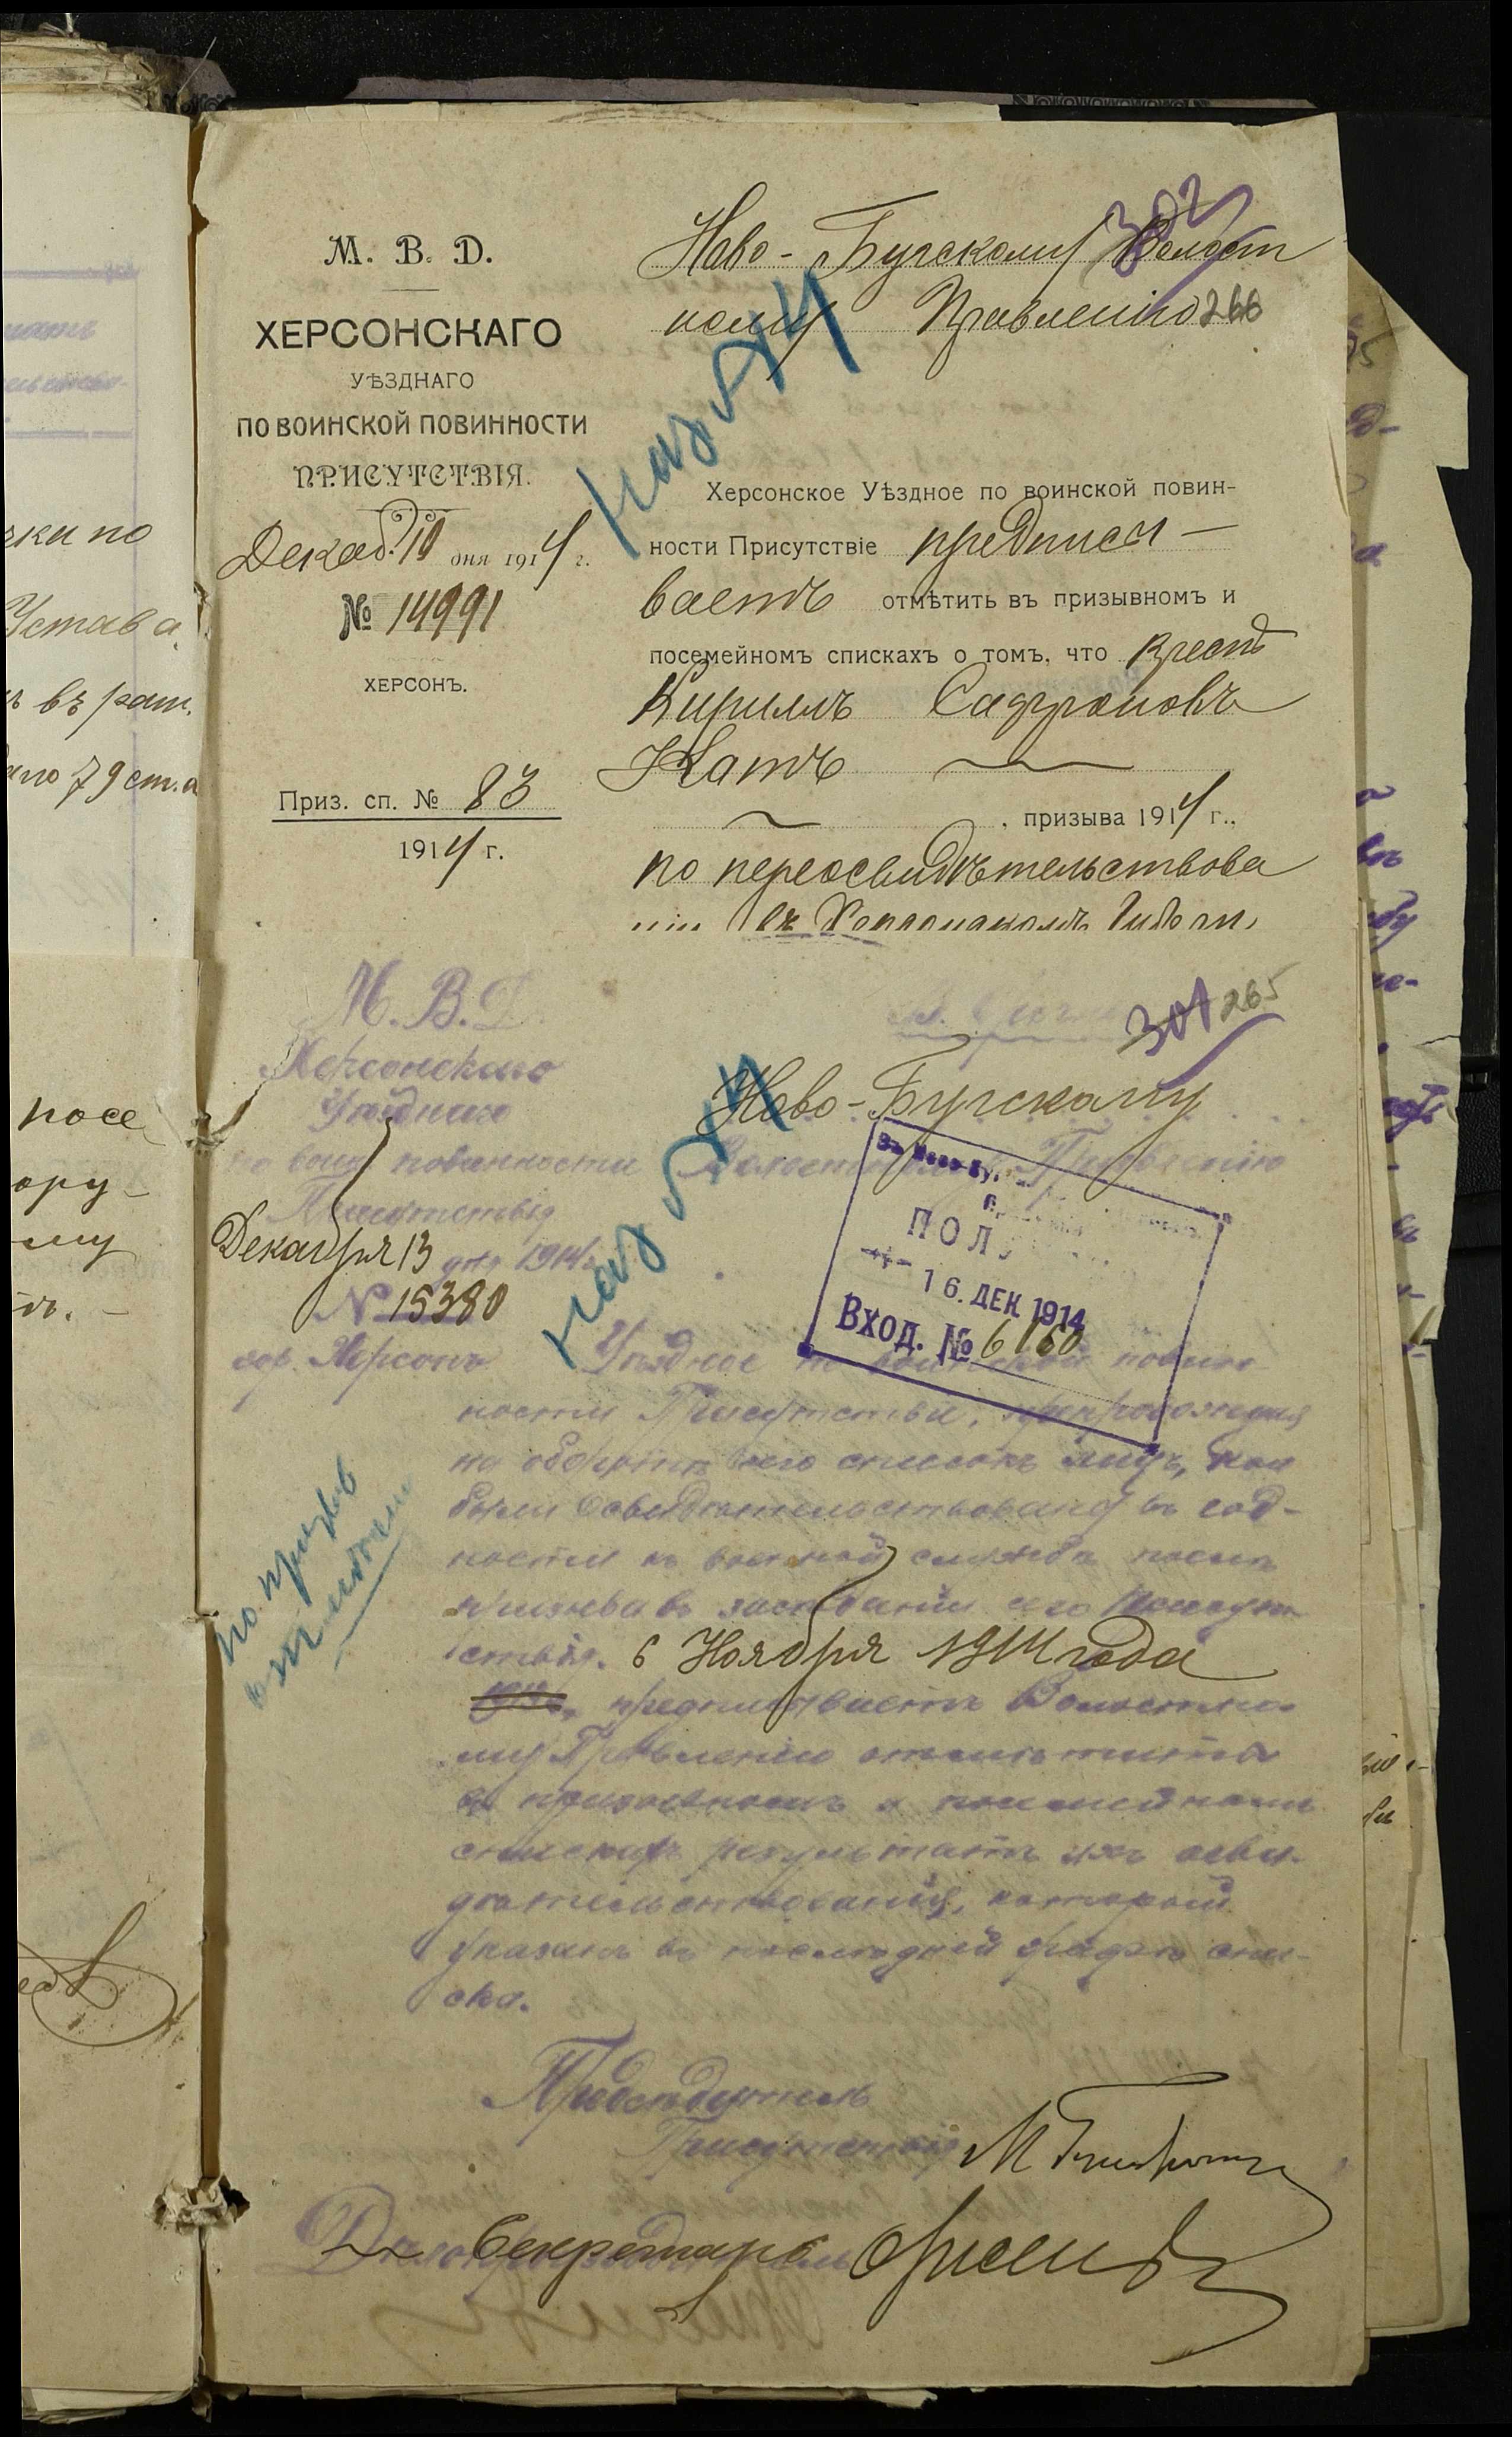 М. В. Д.
ХЕРСОНСКАГО
УѢЗДНАГО
ПО ВОИНСКОЙ ПОВИННОСТИ
ПРИСУТСТВІЯ.
Декаб. 10 дня 1914 г.
№ 14991
ХЕРСОНЪ.
Приз. сп. № 83
1914 г.
302
Ново-Бугскому Волост
ному Правленію 266
Херсонское Уѣздное по воинской повин-
ности Присутствіе предписы-
ваетъ отмѣтить въ призывномъ и
посемейномъ спискахъ о томъ, что крест
Кириллъ Сафроновъ
Катъ
, призыва 1914 г.,
по переосвидѣтельствова
ніи въ Херсонскомъ
М. В. Д.
Херсонскаго
Уѣзднаго
по воин повинности
Присутствія
Декабря 13 дня 1914 г.
№ 15380
гор. Херсонъ
301 265
Ново-Бугскому
Волостному Правленію
ПОЛ
16. ДЕК 1914
ВХОД. № 6160
Уѣздное по воинской повин
ности Присутствіе, препровождая
на оборотѣ сего списокъ лицъ, кои
были освидѣтельствованы въ год-
ности къ военной службѣ послѣ
призыва въ засѣданіи его Присут
ствія. 6 Ноября 1914 года
предписываетъ Волостно-
му Правленію отмѣтить
въ призывномъ и посемейномъ
спискахъ результатъ ихъ осви-
дѣтельствованія, который
указанъ въ послѣдней графѣ спи-
ска.
по призыв
отмѣтки
Предсѣдатель
Присутствія
Секретарь
ки по
Устава
въ рат.
79 ст.
посе
ору-
му